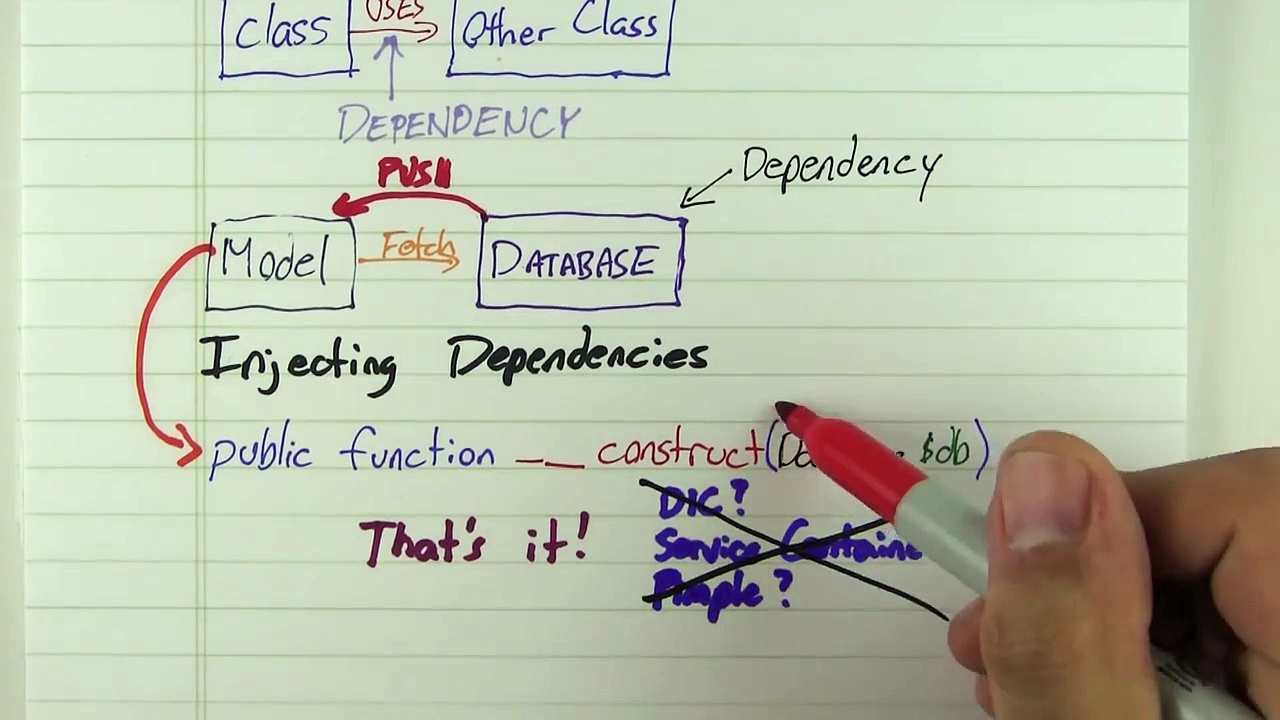 USES
Class Other Class
DEPENDENCY
Dependency
PUSH
Model Fetch DATABASE
Injecting Dependencies
public function __ construct( $db)
That's it!
DIC?
Service
Pimple?